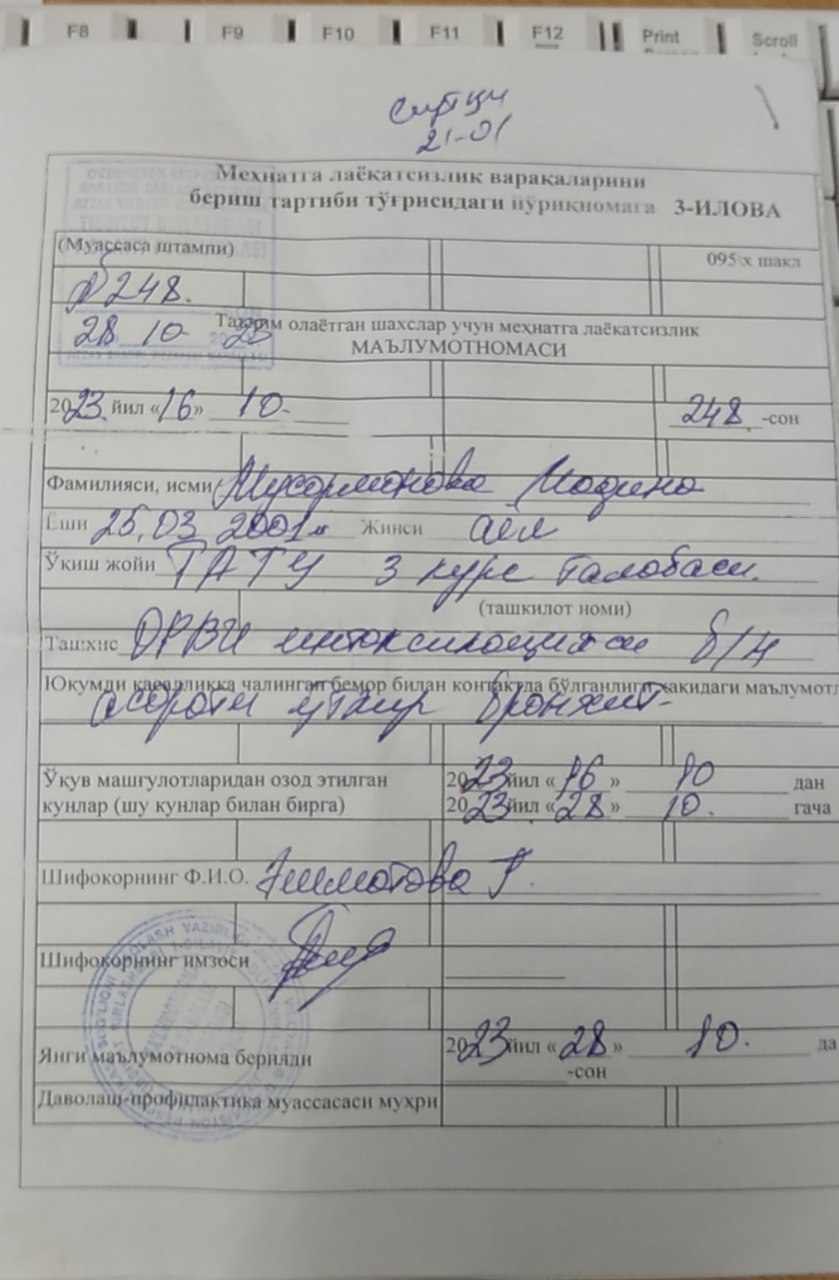 F8 F9 F10 F11 F12 Print Scroll
сиртқи
21-01
Меҳнатга лаёқатсизлик варақаларини
бериш тартиби тўғрисидаги йўриқномага 3-ИЛОВА
(Муассаса штампи) 095 х шакл
№248.
28 10 23 Таҳсил олаётган шахслар учун меҳнатга лаёқатсизлик
МАЪЛУМОТНОМАСИ
2023 йил «16» 10- 248 -сон
Фамилияси, исми Мусормонова Мадина
Ёши 25.03.2001 Жинси аёл
Ўқиш жойи ТАТУ 3 курс талабаси.
(ташкилот номи)
Ташхис ОРВИ интоксикацияси б/н
Юқумли касалликка чалинган бемор билан контактда бўлганлиги ҳақидаги маълумот
асорати ўткир бронхит
Ўқув машғулотларидан озод этилган 2023 йил «16» 10 дан
кунлар (шу кунлар билан бирга) 2023 йил «28» 10. гача
Шифокорнинг Ф.И.О. Эшматова Г.
Шифокорнинг имзоси
Янги маълумотнома берилди 2023 йил «28» 10. да
-сон
Даволаш-профилактика муассасаси муҳри